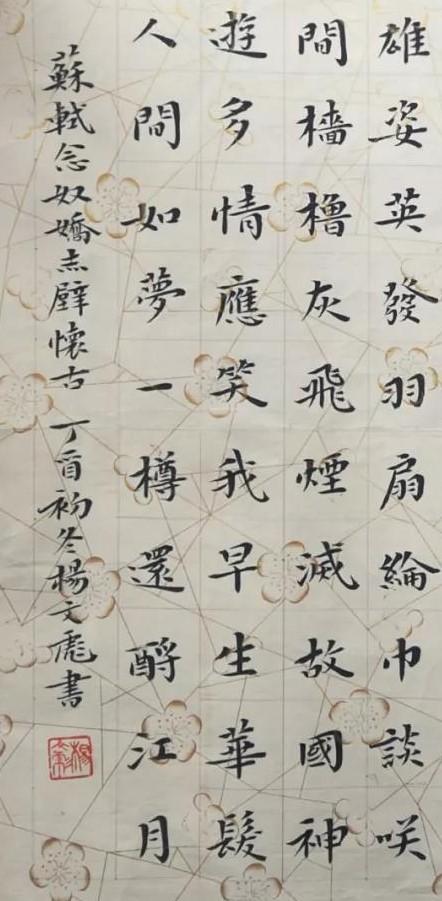 雄姿英發羽扇綸巾談咲
間檣櫓灰飛煙滅故國神
遊多情應笑我早生華髮
人間如夢一樽還酹江月
蘇軾念奴嬌赤壁懷古 丁酉初冬楊文彪書